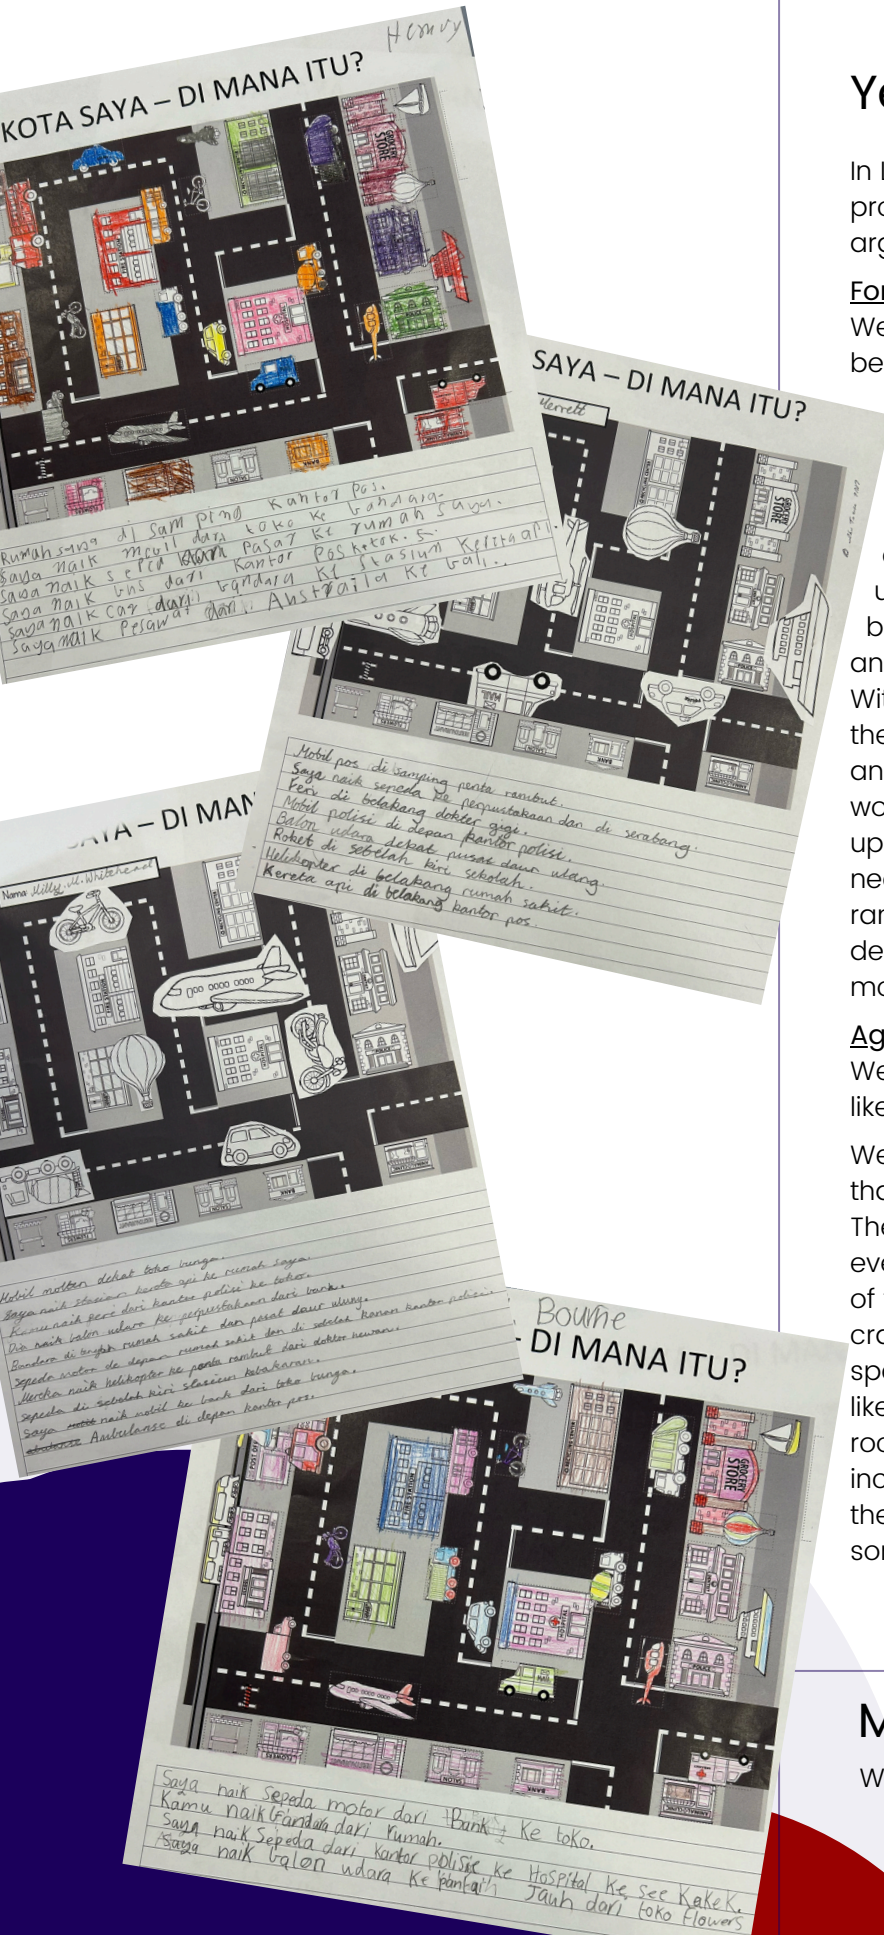 Henvy
KOTA SAYA – DI MANA ITU?
GROCERY STORE
HOSPITAL
BANK
Rumah saya di samping kantor pos.
Saya naik mobil dari toko ke bandara.
Saya naik seped dari Pasar ke rumah saya.
Saya naik bus dari kantor pos ke tok. 5.
Saya naik car (dari) bandara ke stasiun Kereta api
Saya naik Pesawat dari Australia ke bali.
SAYA – DI MANA ITU?
Merrett
GROCERY STORE
POLICE
MAIL
FLOWERS
SALON
BANK
Mobil pos di samping penta rambut.
Saya naik sepeda ke perpustakaan dan di serabang.
Feri di belakang dokter gigi.
Mobil polisi di depan kantor polisi.
Balon udara dekat pusat daur ulang.
Roket di sebelah kiri sekolah.
Helikopter di belakang rumah sakit.
Kereta api di belakang kantor pos.
SAYA – DI MAN
Nama Milly.M.Whitehead
FIRE STATION
HOSPITAL
POLICE
FLOWERS
SALON
BANK
Mobil molten dekat toko bunga.
Saya naik stasiun kereta api ke rumah saya.
Kamu naik feri dari kantor polisi ke toko.
Dia naik balon udara ke perpustakaan dari bank.
Bandara di tengah rumah sakit dan pusat daur ulung.
Sepeda motor de depan rumah sakit dan di sebelah kanan kantor polisi.
Mereka naik helikopter ke penta rambut dari dokter hewan.
Sepeda di sebelah kiri stasiun kebakaran.
Saya naik mobil ke bank dari toko bunga.
Ambulanse di depan kantor pos.
Bourne
– DI MANA ITU?
GROCERY STORE
FIRE STATION
HOSPITAL
POLICE
MAIL
FLOWERS
SALON
BANK
Saya naik Sepeda motor dari Bank ke toko.
Kamu naik Bandara dari rumah.
Saya naik Sepeda dari kantor polisie ke Hospital ke see KakeK.
Saya naik balon udara ke pantaih Jauh dari toko flowers
Ye
In
pro
arg
For
We
be
u
b
an
Wit
the
an
wo
up
ne
rar
de
mo
Ag
We
like
We
tha
The
eve
of
cro
spe
like
roc
inc
the
sor
M
W